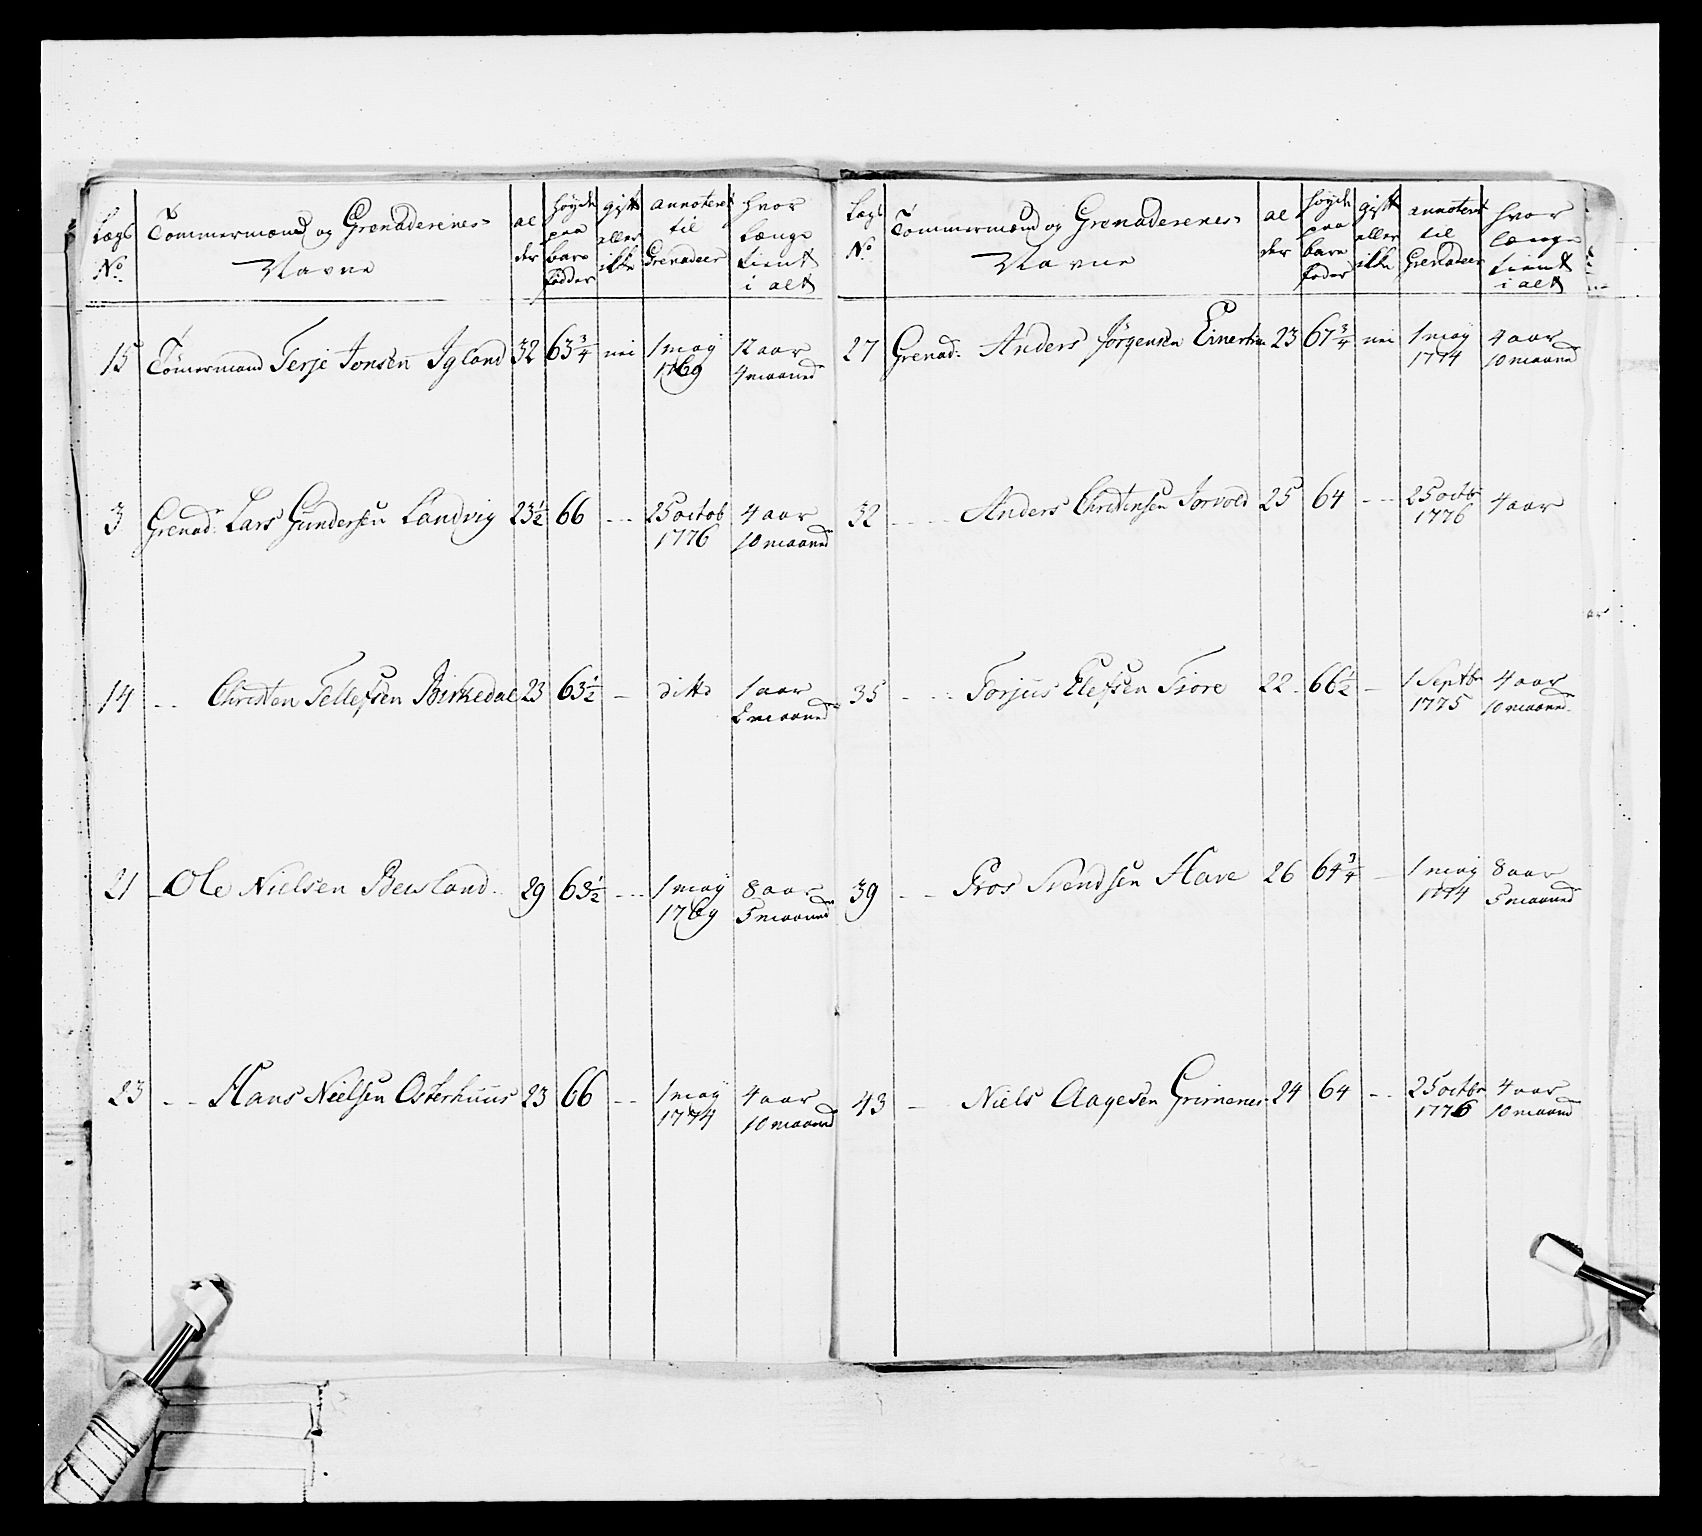 Lægs No
Tømmermænd og Grenaderenes Navne
al der
høyde paa bare fødder
gift eller ikke
annoteret til Grenadeer
hvor længe tient i alt
15 Tømermand Terje Jonsen Igland 32 63 3/4 nei 1 may 1769 12 aar 4 maaned
3 Grenad: Lars Gundersen Landvig 23 1/2 66 - - 25 octob 1776 4 aar 10 maaned
14 - - Christen Tellefsen Birkedal 23 63 1/2 - ditto 1 aar maaned
21 - Ole Nielsen 29 63 1/2 - - 1 may 1769 8 aar 5 maaned
23 - - Hans Nielsen Osterhuus 23 66 - - 1 may 1774 4 aar 10 maaned
Lægs No
Tømmermænd og Grenaderenes Navne
al der
høyde paa bare føder
gift eller ikke
annoteret til Grenadeer
hvor længe tient i alt
27 Grenad: Anders Jørgensen 23 67 3/4 nei 1 may 1774 4 aar 10 maaned
32 - - Anders Christensen Jorvold 25 64 - - 25 octbr 1776 4 aar
35 - - Torjus Elefsen Fiore 22 66 1/2 - 1 Septbr 1775 4 aar 10 maaned
39 - - Gros Svendsen Have 26 64 3/4 - 1 may 1774 8 aar 5 maaned
43 - Niels Aagesen Grimenes 24 64 - - 25 octbr 1776 4 aar 10 maaned